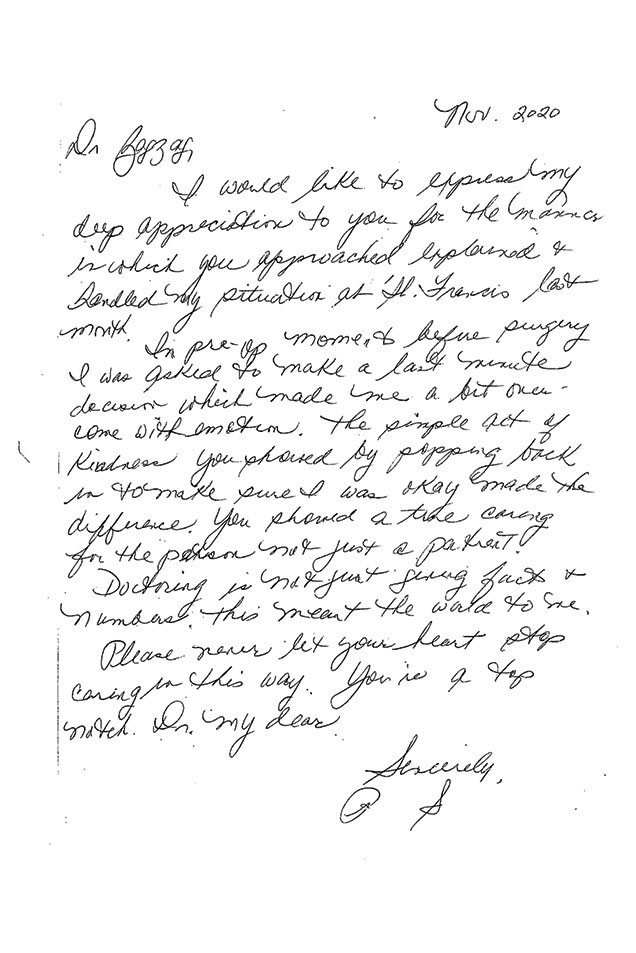 Nov. 2020
Dr
I would like to express my
deep appreciation to you for the manner
in which you approached explained &
handled my situation at St. Francis last
month.
In pre-op moments before surgery
I was asked to make a last minute
decision which made me a bit over-
come with emotion. The simple act of
Kindness you showed by popping back
in to make sure I was okay made the
difference. You showed a true caring
for the person not just a patient.
Doctoring is not just giving facts &
numbers. this meant the world to me.
Please never let your heart stop
caring in this way. You're a top
notch. Dr. my dear
Sincerely,
P S